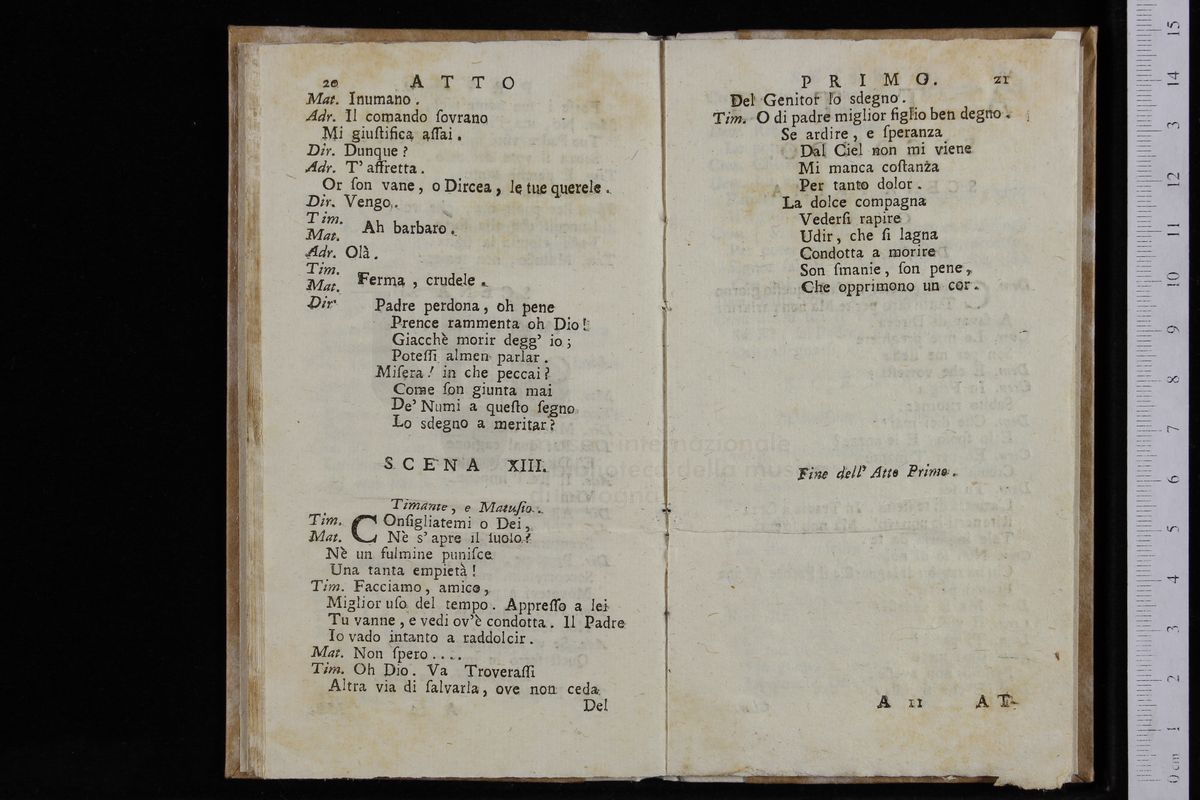 20 ATTO
Mat. Inumano.
Adr. Il comando ſovrano
Mi giuſtifica aſſai.
Dir. Dunque?
Adr. T' affretta.
Or ſon vane, o Dircea, le tue querele.
Dir. Vengo.
Tim.
Mat. Ah barbaro.
Adr. Olà.
Tim.
Mat. Ferma, crudele.
Dir. Padre perdona, oh pene
Prence rammenta oh Dio!
Giacchè morir degg' io;
Poteſſi almen parlar.
Miſera! in che peccai?
Come ſon giunta mai
De' Numi a queſto ſegno
Lo sdegno a meritar?
SCENA XIII.
Timante, e Matuſio.
Tim. COnſigliatemi o Dei,
Mat. Nè s' apre il ſuolo?
Nè un fulmine puniſce
Una tanta empietà!
Tim. Facciamo, amico,
Miglior uſo del tempo. Appreſſo a lei
Tu vanne, e vedi ov'è condotta. Il Padre
Io vado intanto a raddolcir.
Mat. Non ſpero....
Tim. Oh Dio. Va Troveraſſi
Altra via di ſalvarla, ove non ceda
Del
PRIMO. 21
Del Genitor lo sdegno.
Tim. O di padre miglior figlio ben degno.
Se ardire, e ſperanza
Dal Ciel non mi viene
Mi manca coſtanza
Per tanto dolor.
La dolce compagna
Vederſi rapire
Udir, che ſi lagna
Condotta a morire
Son ſmanie, ſon pene,
Che opprimono un cor.
Fine dell' Atto Primo.
A 11 AT-
internazionale
biblioteca della mus
di bologna
0 cm 1 2 3 4 5 6 7 8 9 10 11 12 13 14 15